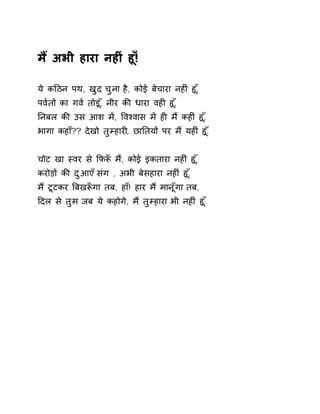 मैं अभी हारा नहीं हूँ!
ये कठिन पथ, खुद चुना है, कोई बेचारा नहीं हूँ,
पर्वतों का गर्व तोडूँ, नीर की धारा वही हूँ,
निर्बल की उस आश में, विश्वास में ही मैं कहीं हूँ,
भागा कहाँ?? देखो तुम्हारी, छातियों पर मैं यहीं हूँ,
चोट खा स्वर से फिरूँ मैं, कोई इकतारा नहीं हूँ,
करोड़ों की दुआएँ संग , अभी बेसहारा नहीं हूँ,
मैं टूटकर बिखरूँगा तब, हाँ! हार मैं मानूँगा तब,
दिल से तुम जब ये कहोगे, मैं तुम्हारा भी नहीं हूँ,